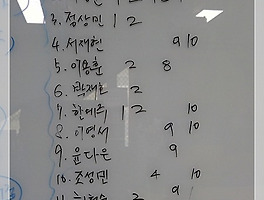 3. 정상민 1 2
4. 서재현 9 10
5. 이용훈 2 8
6. 박재호 2
7. 한예주 1 2 10
8. 이영서 9 10
9. 윤다은 9
10. 조성민 4 10
9